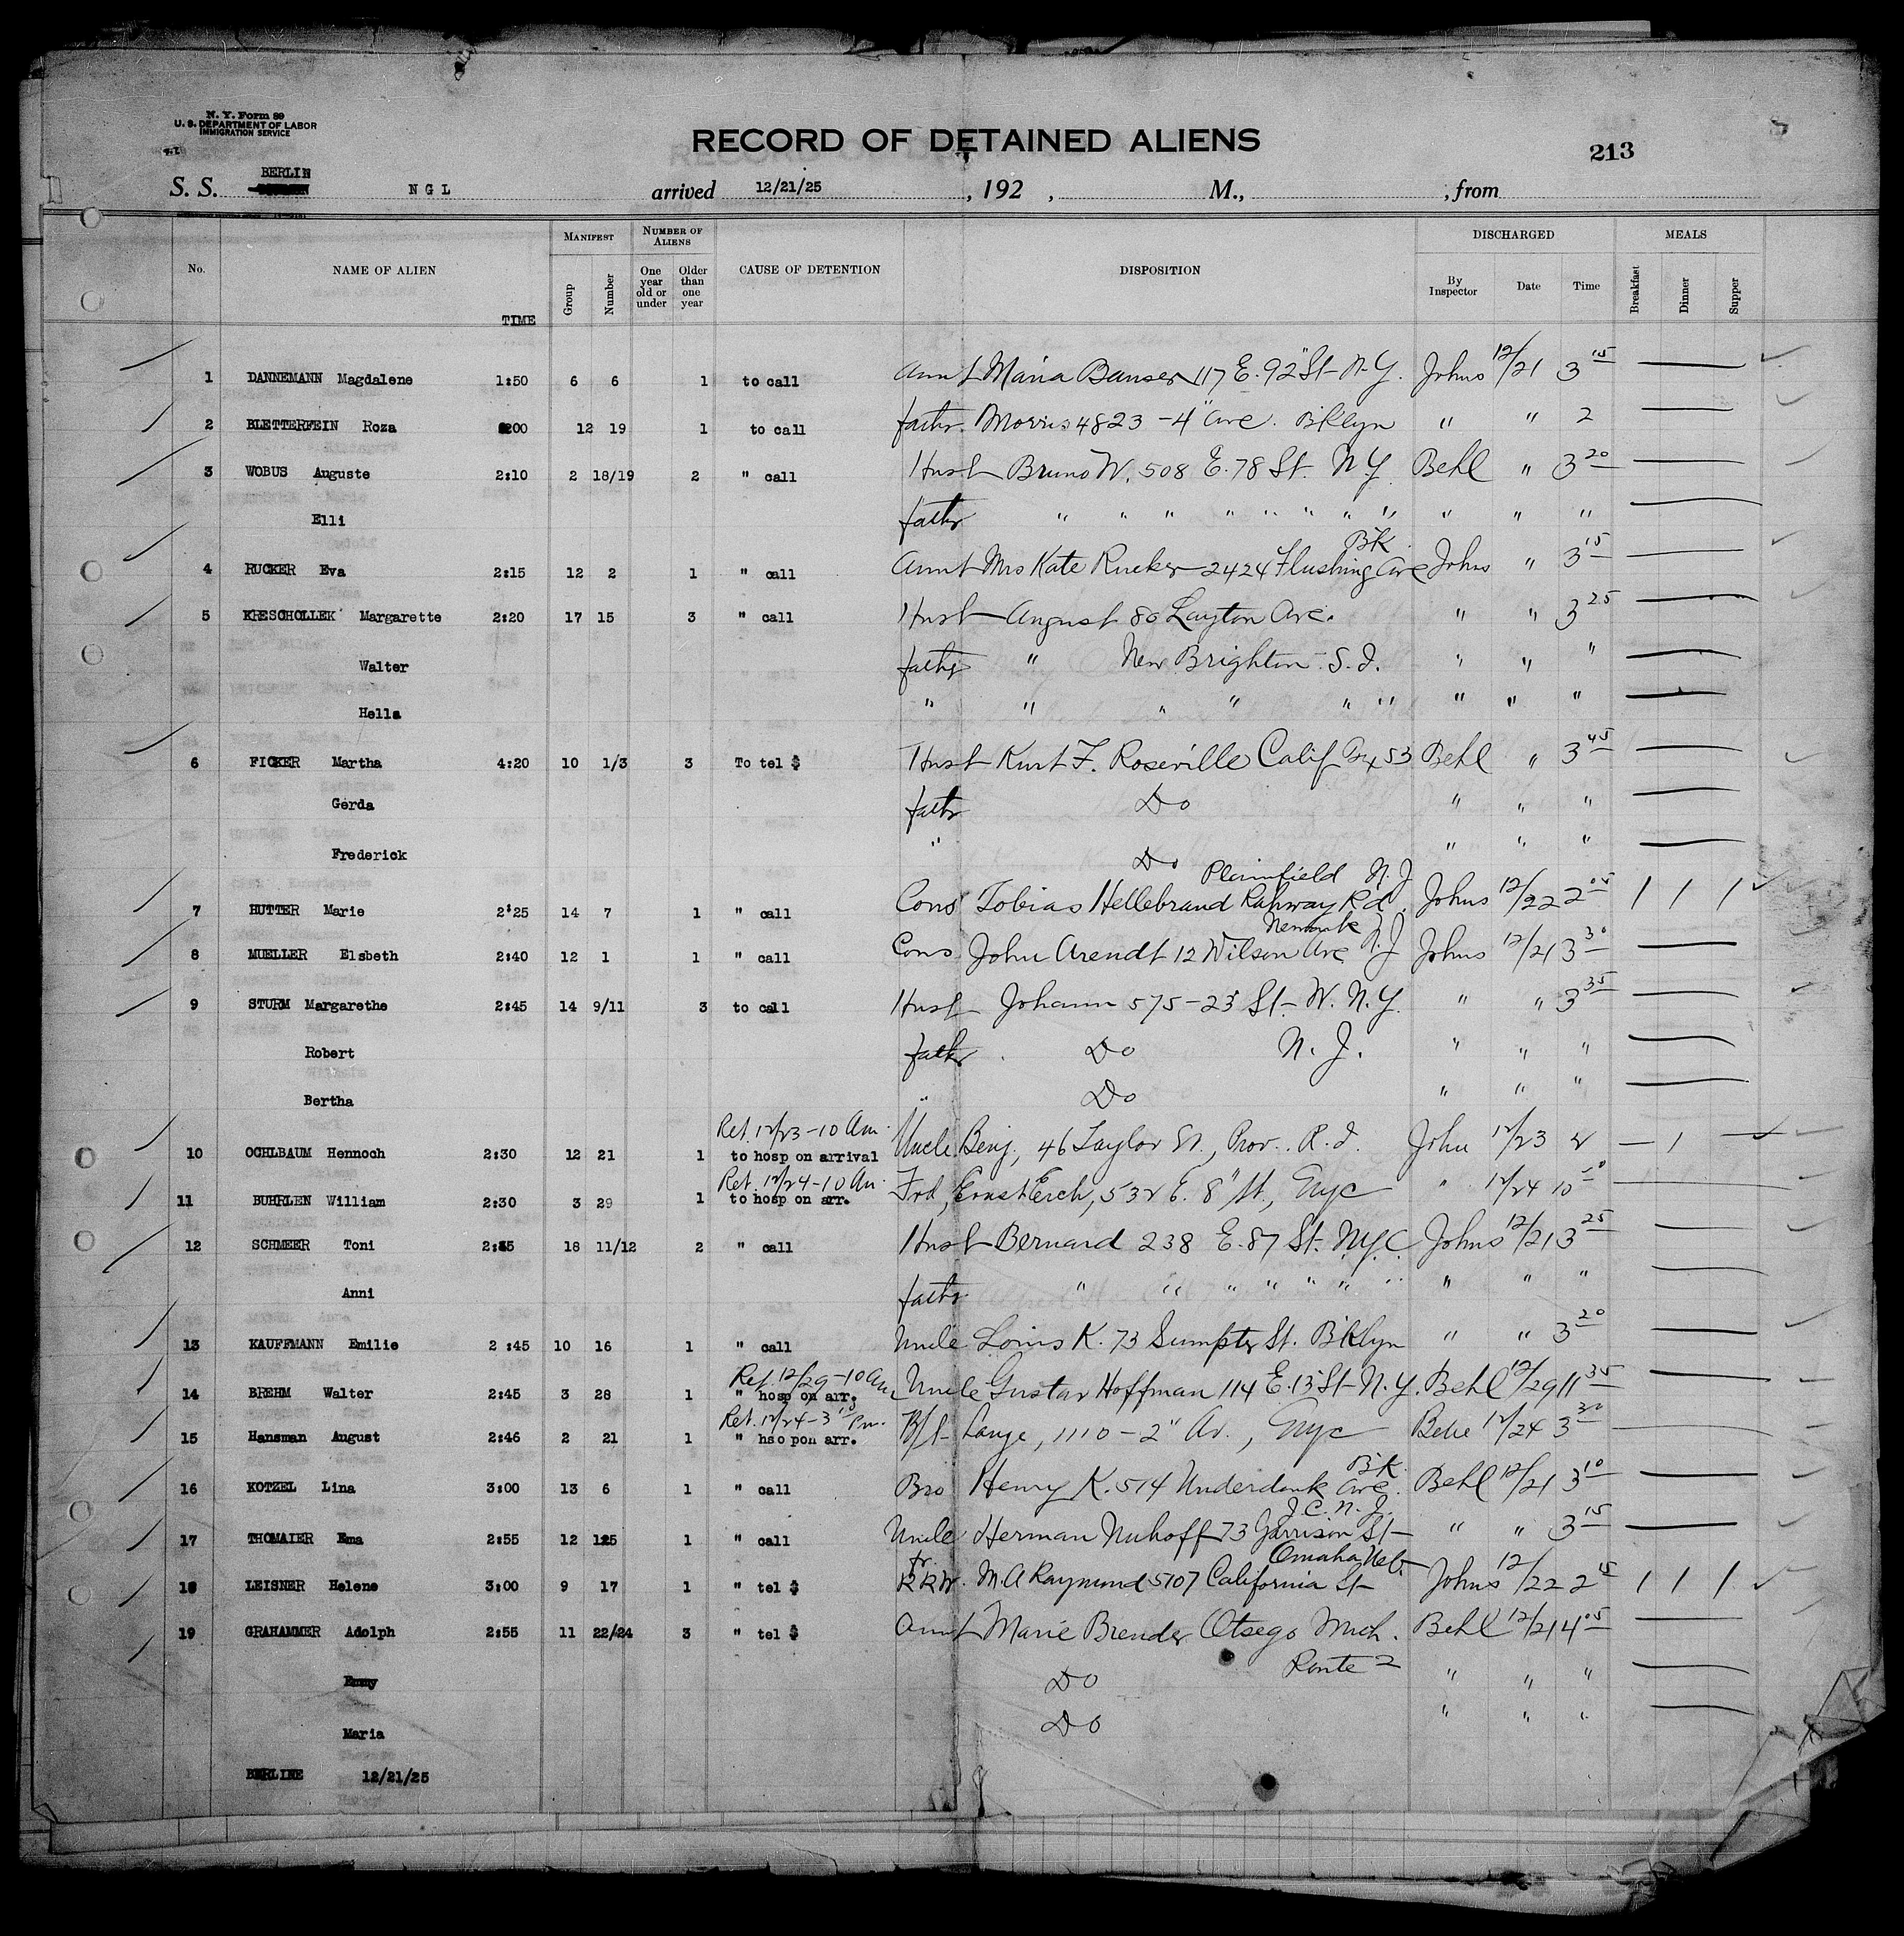 N. Y. Form 89
U. S. DEPARTMENT OF LABOR
IMMIGRATION SERVICE
RECORD OF DETAINED ALIENS
213
BERLIN
S. S. N G L arrived 12/21/25, 192 , M., , from
No. NAME OF ALIEN TIME MANIFEST Group Number NUMBER OF ALIENS One year old or under Older than one year CAUSE OF DETENTION DISPOSITION DISCHARGED By Inspector Date Time MEALS Breakfast Dinner Supper
1 DANNEMANN Magdalene 1:50 6 6 1 to call Aunt Maria Banser 117 E. 92" St- N.Y. Johns 12/21 3 15
2 BLETTERFEIN Roza 200 12 19 1 to call father Morris 4823 - 4" Ave. Bklyn " " 2
3 WOBUS Auguste 2:10 2 18/19 2 " call Husb Bruno W. 508 E. 78 St. N Y Behl " 3 20
Elli father " " " " " " " " " " "
BK
4 RUCKER Eva 2:15 12 2 1 " call Aunt Mrs Kate Rucker - 2424 Flushing Ave Johns " 3 15
5 KRESCHOLLEK Margarette 2:20 17 15 3 " call Husb August 80 Layton Ave. " " 3 25
Walter father " New Brighton S.I. " " "
Hella " " " " " " " " "
6 FICKER Martha 4:20 10 1/3 3 To tel $ Husb Kurt F. Roseville Calif Bx 53 Behl " 3 45
Gerda father Do " " "
Frederick " Do " " "
Plainfield N.J
7 HUTTER Marie 2:25 14 7 1 " call Cons Tobias Hellebrand Rahway Rd. Johns 12/22 2 05 1 1 1
Newark N.J
8 MUELLER Elsbeth 2:40 12 1 1 " call Cons John Arendt 12 Wilson Ave Johns 12/21 3 30
9 STURM Margarethe 2:45 14 9/11 3 to call Husb Johann 575-23 St- W. N.Y. " " 3 35
Robert father Do N. J. " " "
Bertha " Do " " "
Ret. 12/23-10 Am.
10 OCHLBAUM Hennoch 2:30 12 21 1 to hosp on arrival Uncle Benj, 46 Taylor St., Prov. R.I. John 12/23 2 — 1 —
Ret. 12/24-10 Am.
11 BUHRLEN William 2:30 3 29 1 to hosp on arr. Frd, Ernst Erch, 532 E. 8" St, Nyc " 12/24 10
12 SCHMEER Toni 18 11/12 2 " call Husb Bernard 238 E. 87 St. N.Y.C. Johns 12/21 3 25
Anni father " " " " " " " " " "
13 KAUFFMANN Emilie 2 :45 10 16 1 " call Uncle Louis K. 73 Sumpter St. Bklyn " " 3 20
Ret. 12/29-10 Am
14 BREHM Walter 2:45 3 28 1 " hosp on arr. Uncle Gustav Hoffman 114 E. 13" St- N.Y. Behl 12/29 11 35
Ret. 12/24-3 Pm.
15 Hansman August 2:46 2 21 1 " hso pon arr. Lange, 1110-2" Av., Nyc 12/24 3 30
BK.
16 KOTZEL Lina 3:00 13 6 1 " call Bro Henry K. 514 Underdonk Ave. Behl 12/21 3 10
J.C. N.J.
17 THOMAIER Ema 2:55 12 125 1 " call Uncle Herman Nuhoff 73 Garrison St- " " 3 15
Omaha Neb.
18 LEISNER Helene 3:00 9 17 1 " tel $ M.A Raymond 5107 California St- Johns 12/22 2 15 1 1 1
19 GRAHAMMER Adolph 2:55 11 22/24 3 " tel $ Aunt Marie Brender Otsego Mich. Behl 12/21 4 05
Emmy Do Route 2 " " "
Maria Do " " "
BERLINE 12/21/25